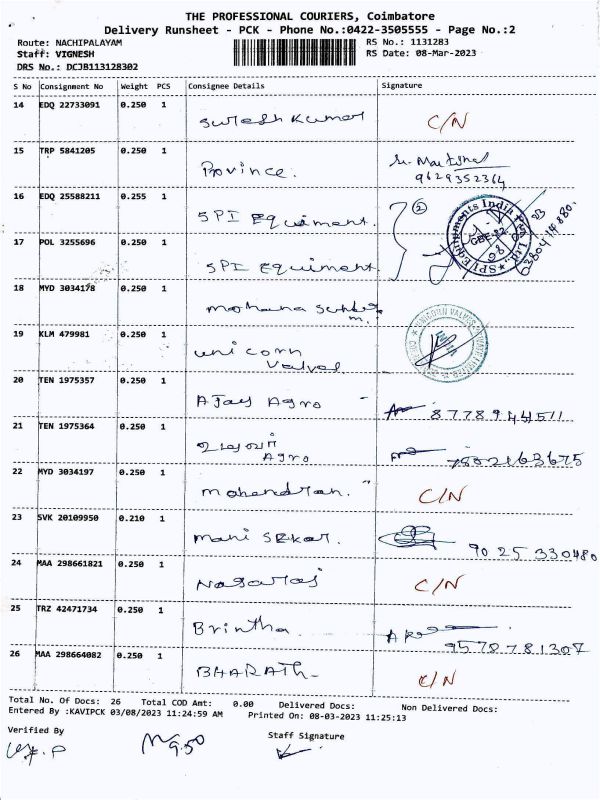 THE PROFESSIONAL COURIERS, Coimbatore
Delivery Runsheet - PCK - Phone No.:0422-3505555 - Page No.:2
Route: NACHIPALAYAM RS No.: 1131283
Staff: VIGNESH RS Date: 08-Mar-2023
DRS No.: DCJB113128302
S No Consignment No Weight PCS Consignee Details Signature
14 EDQ 22733091 0.250 1
Suresh Kumar C/N
15 TRP 5841205 0.250 1
Province. 9629352364
16 EDQ 25588211 0.255 1
SPI Equiment. 2
17 POL 3255696 0.250 1
SPI Equiment
18 MYD 3034178 0.250 1
mohana
m.
19 KLM 479981 0.250 1
unicorn
Valves
20 TEN 1975357 0.250 1
AJay Agro 8778944511
21 TEN 1975364 0.250 1
Agro
22 MYD 3034197 0.250 1
mahendran. C/N
23 SVK 20109950 0.210 1
mani SEkar. 9025330480
24 MAA 298661821 0.250 1
Nagaraj C/N
25 TRZ 42471734 0.250 1
Brintha. 9578781307
26 MAA 298664082 0.250 1
BHARATH C/N
Total No. Of Docs: 26 Total COD Amt: 0.00 Delivered Docs: Non Delivered Docs:
Entered By :KAVIPCK 03/08/2023 11:24:59 AM Printed On: 08-03-2023 11:25:13
Verified By Staff Signature
9.50